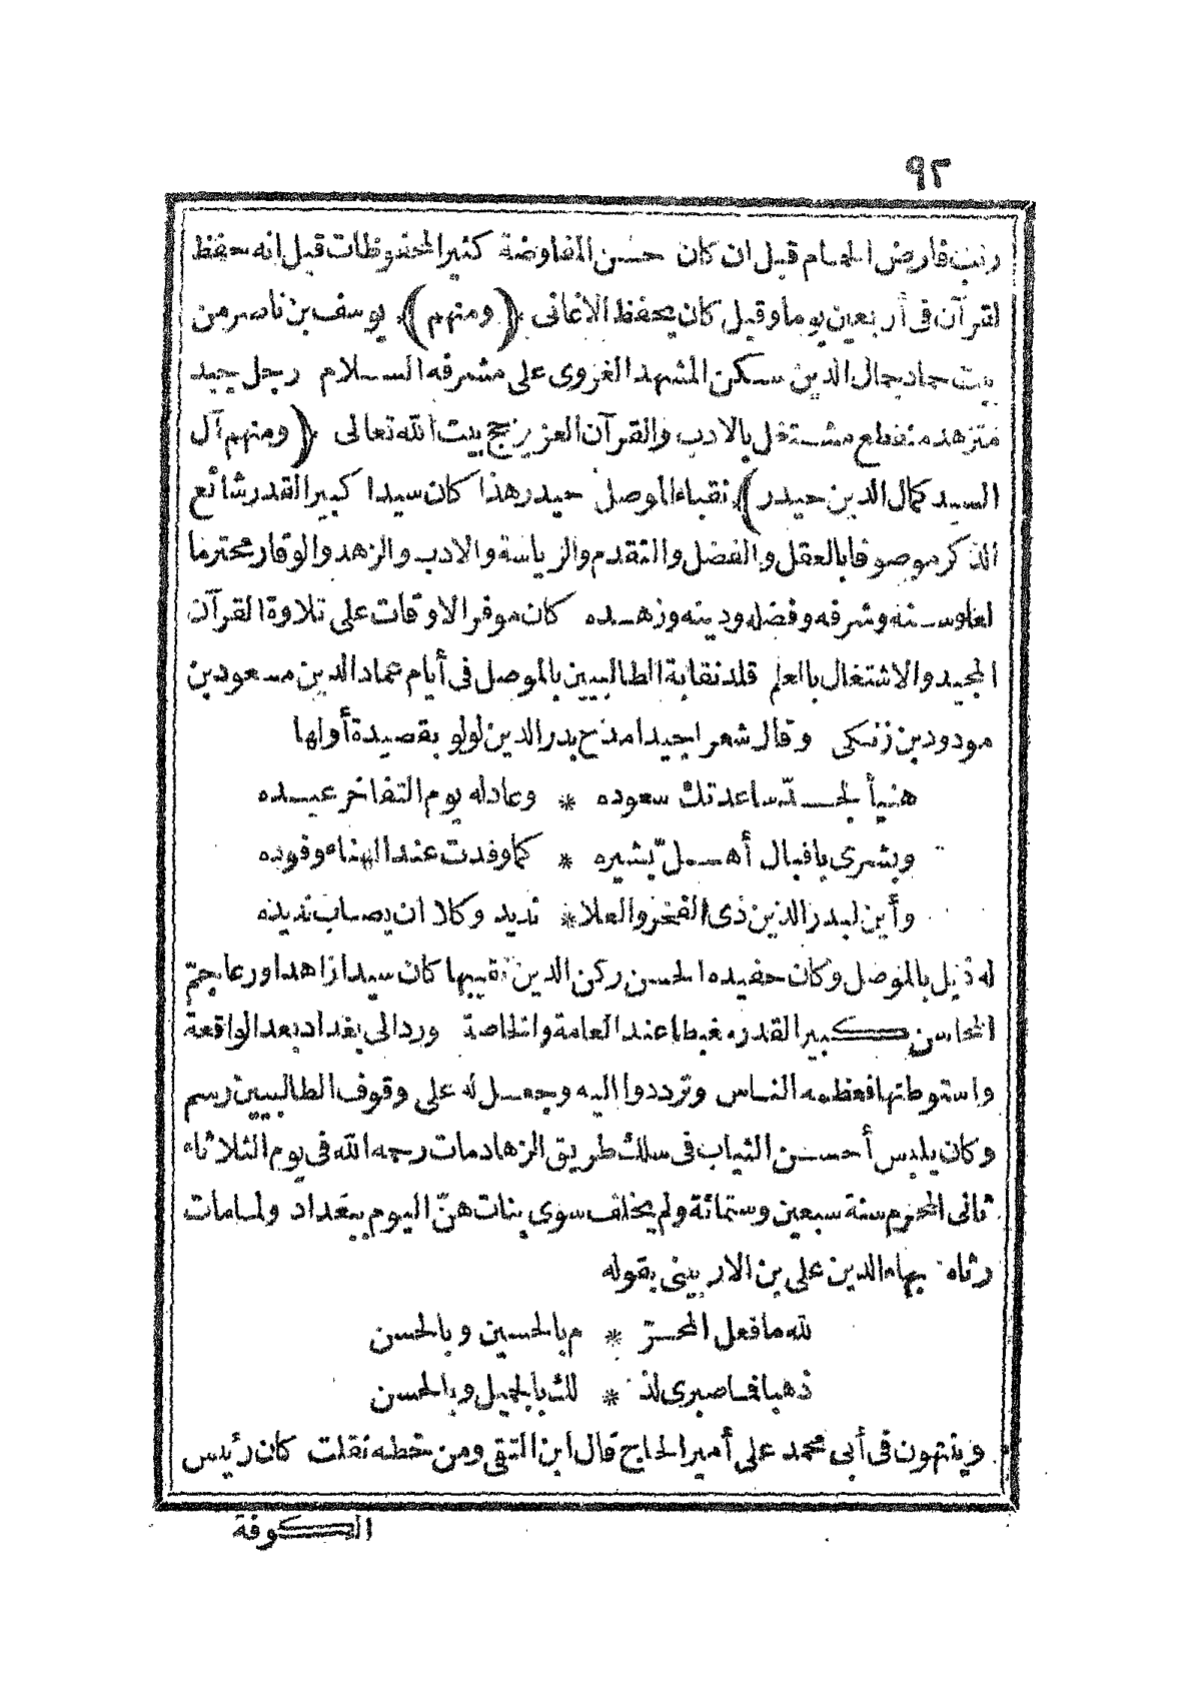 ٩٢
فارض الحمام قيل ان كان حسن المفاوضة كثير المحفوظات قيل انه حفظ
لقرآن فى أربعين يوما وقيل كان يحفظ الاغانى ﴿ومنهم﴾ يوسف بن ناصر من
بيت حماد جمال الدين سكن المشهد الغروى على مشرفه السلام رجل جيد
متزهد منقطع مشتغل بالادب والقرآن العزيز حج بيت الله تعالى ﴿ومنهم آل
السيد كمال الدين حيدر﴾ نقباء الموصل حيدر هذا كان سيدا كبير القدر شائع
الذكر موصوفا بالعقل والفضل والتقدم والرياسة والادب والزهد والوقار محترما
لعلو سنه وشرفه وفضله ودينه وزهده كان موفر الاوقات على تلاوة القرآن
المجيد والاشتغال بالعلم قلد نقابة الطالبيين بالموصل فى أيام عماد الدين مسعود بن
مودود بن زنكى وقال شعرا جيدا مدح بدر الدين لولو بقصيدة أولها
هنيأ لجدّ ساعدتك سعوده * وعاد له يوم التفاخر عيده
وبشرى باقبال أهلّ بشيره * كما وفدت عند الهناء وفوده
وأين لبدر الدين ذى الفخر والعلا * نديد وكلا ان يصاب نديده
له ذيل بالموصل وكان حفيده الحسن ركن الدين نقيبها كان سيدا زاهدا ورعا جمّ
المحاسن كبير القدر مغبطا عند العامة والخاصة ورد الى بغداد بعد الواقعة
واستوطنها فعظمه الناس وترددوا اليه وجعل له على وقوف الطالبيين رسم
وكان يلبس أحسن الثياب فى سلك طريق الزهاد مات رحمه الله فى يوم الثلاثاء
ثانى المحرم سنة سبعين وستمائة ولم يخلف سوى بنات هنّ اليوم ببغداد ولما مات
رثاه بهاء الدين على بن الاربيلى بقوله
لله ما فعل المحرّ * م بالحسين وبالحسن
ذهبا فما صبرى لذ * لك بالجميل وبالحسن
وينتهون فى أبى محمد على أمير الحاج قال ابن التقى ومن خطه نقلت كان رئيس
الكوفة